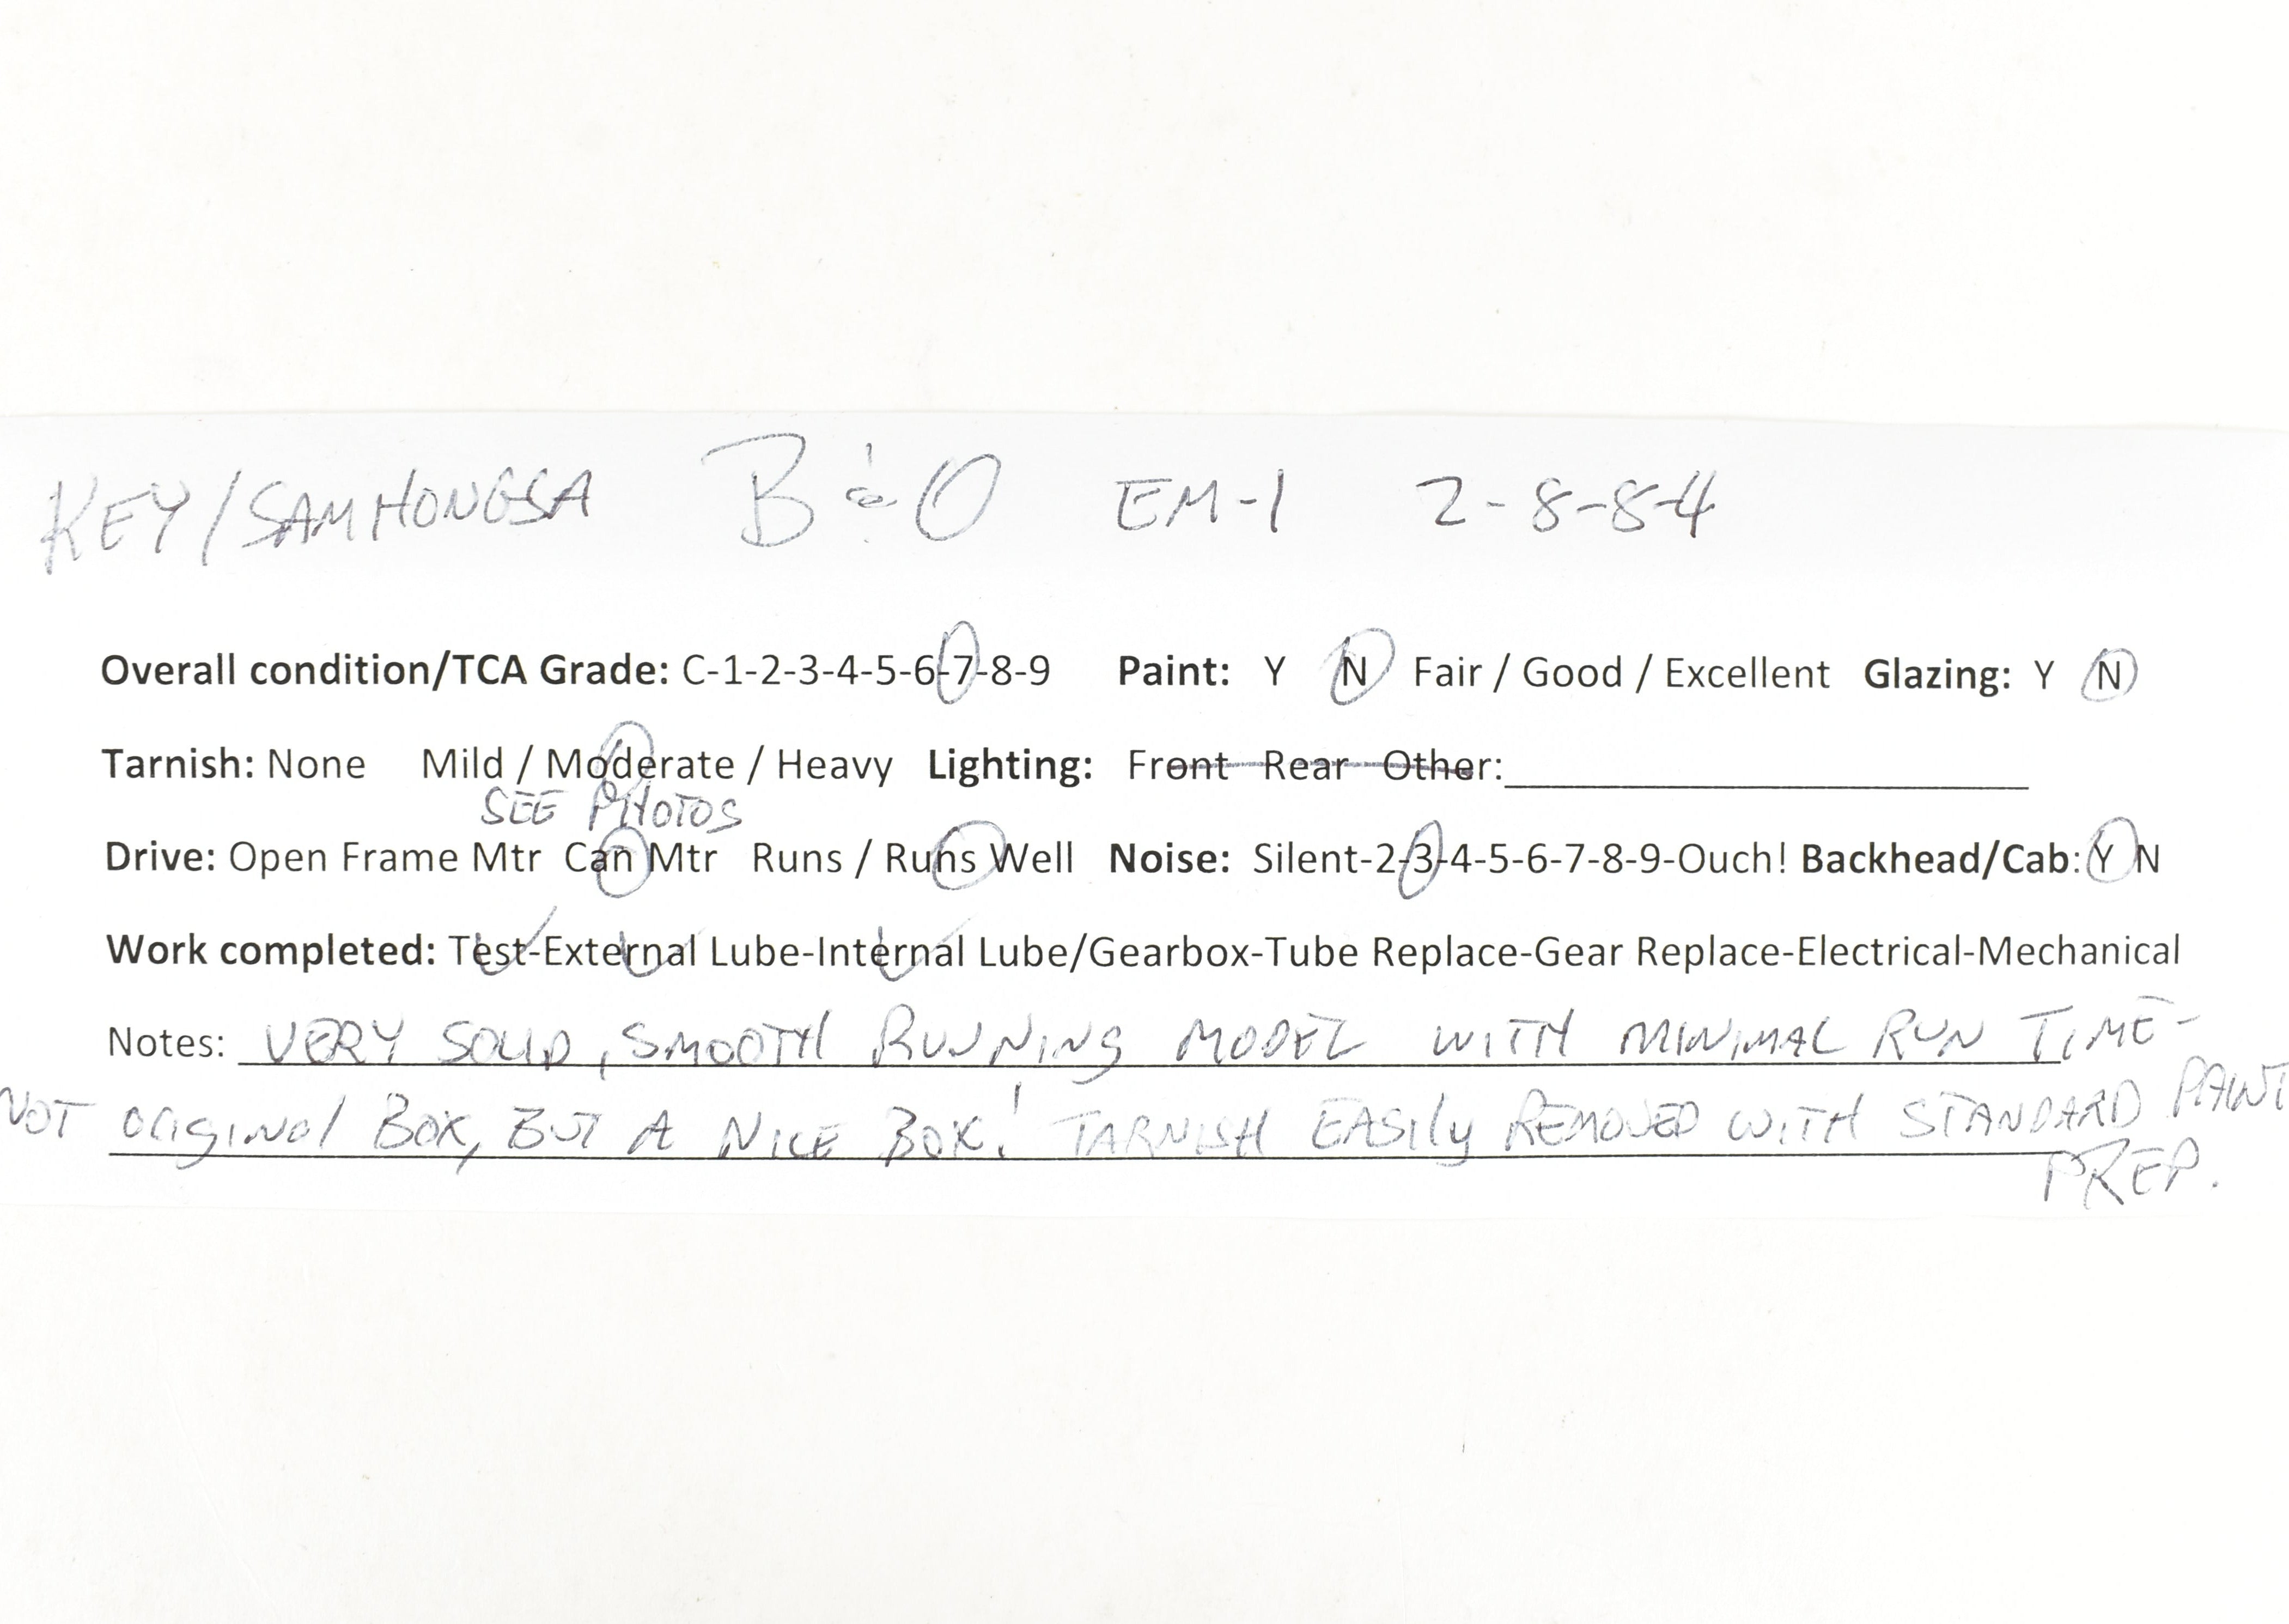 KEY/SAMHONGSA B&O EM-1 2-8-8-4
Overall condition/TCA Grade: C-1-2-3-4-5-6-7-8-9 Paint: Y N Fair / Good / Excellent Glazing: Y N
Tarnish: None Mild / Moderate / Heavy Lighting: Front Rear Other:
SEE PHOTOS
Drive: Open Frame Mtr Can Mtr Runs / Runs Well Noise: Silent-2-3-4-5-6-7-8-9-Ouch! Backhead/Cab: Y N
Work completed: Test-External Lube-Internal Lube/Gearbox-Tube Replace-Gear Replace-Electrical-Mechanical
Notes: VERY SOLID, SMOOTH RUNNING MODEL WITH MINIMAL RUN TIME-
NOT ORIGINAL BOX, BUT A NICE BOX! TARNISH EASILY REMOVED WITH STANDARD PAINT
PREP.